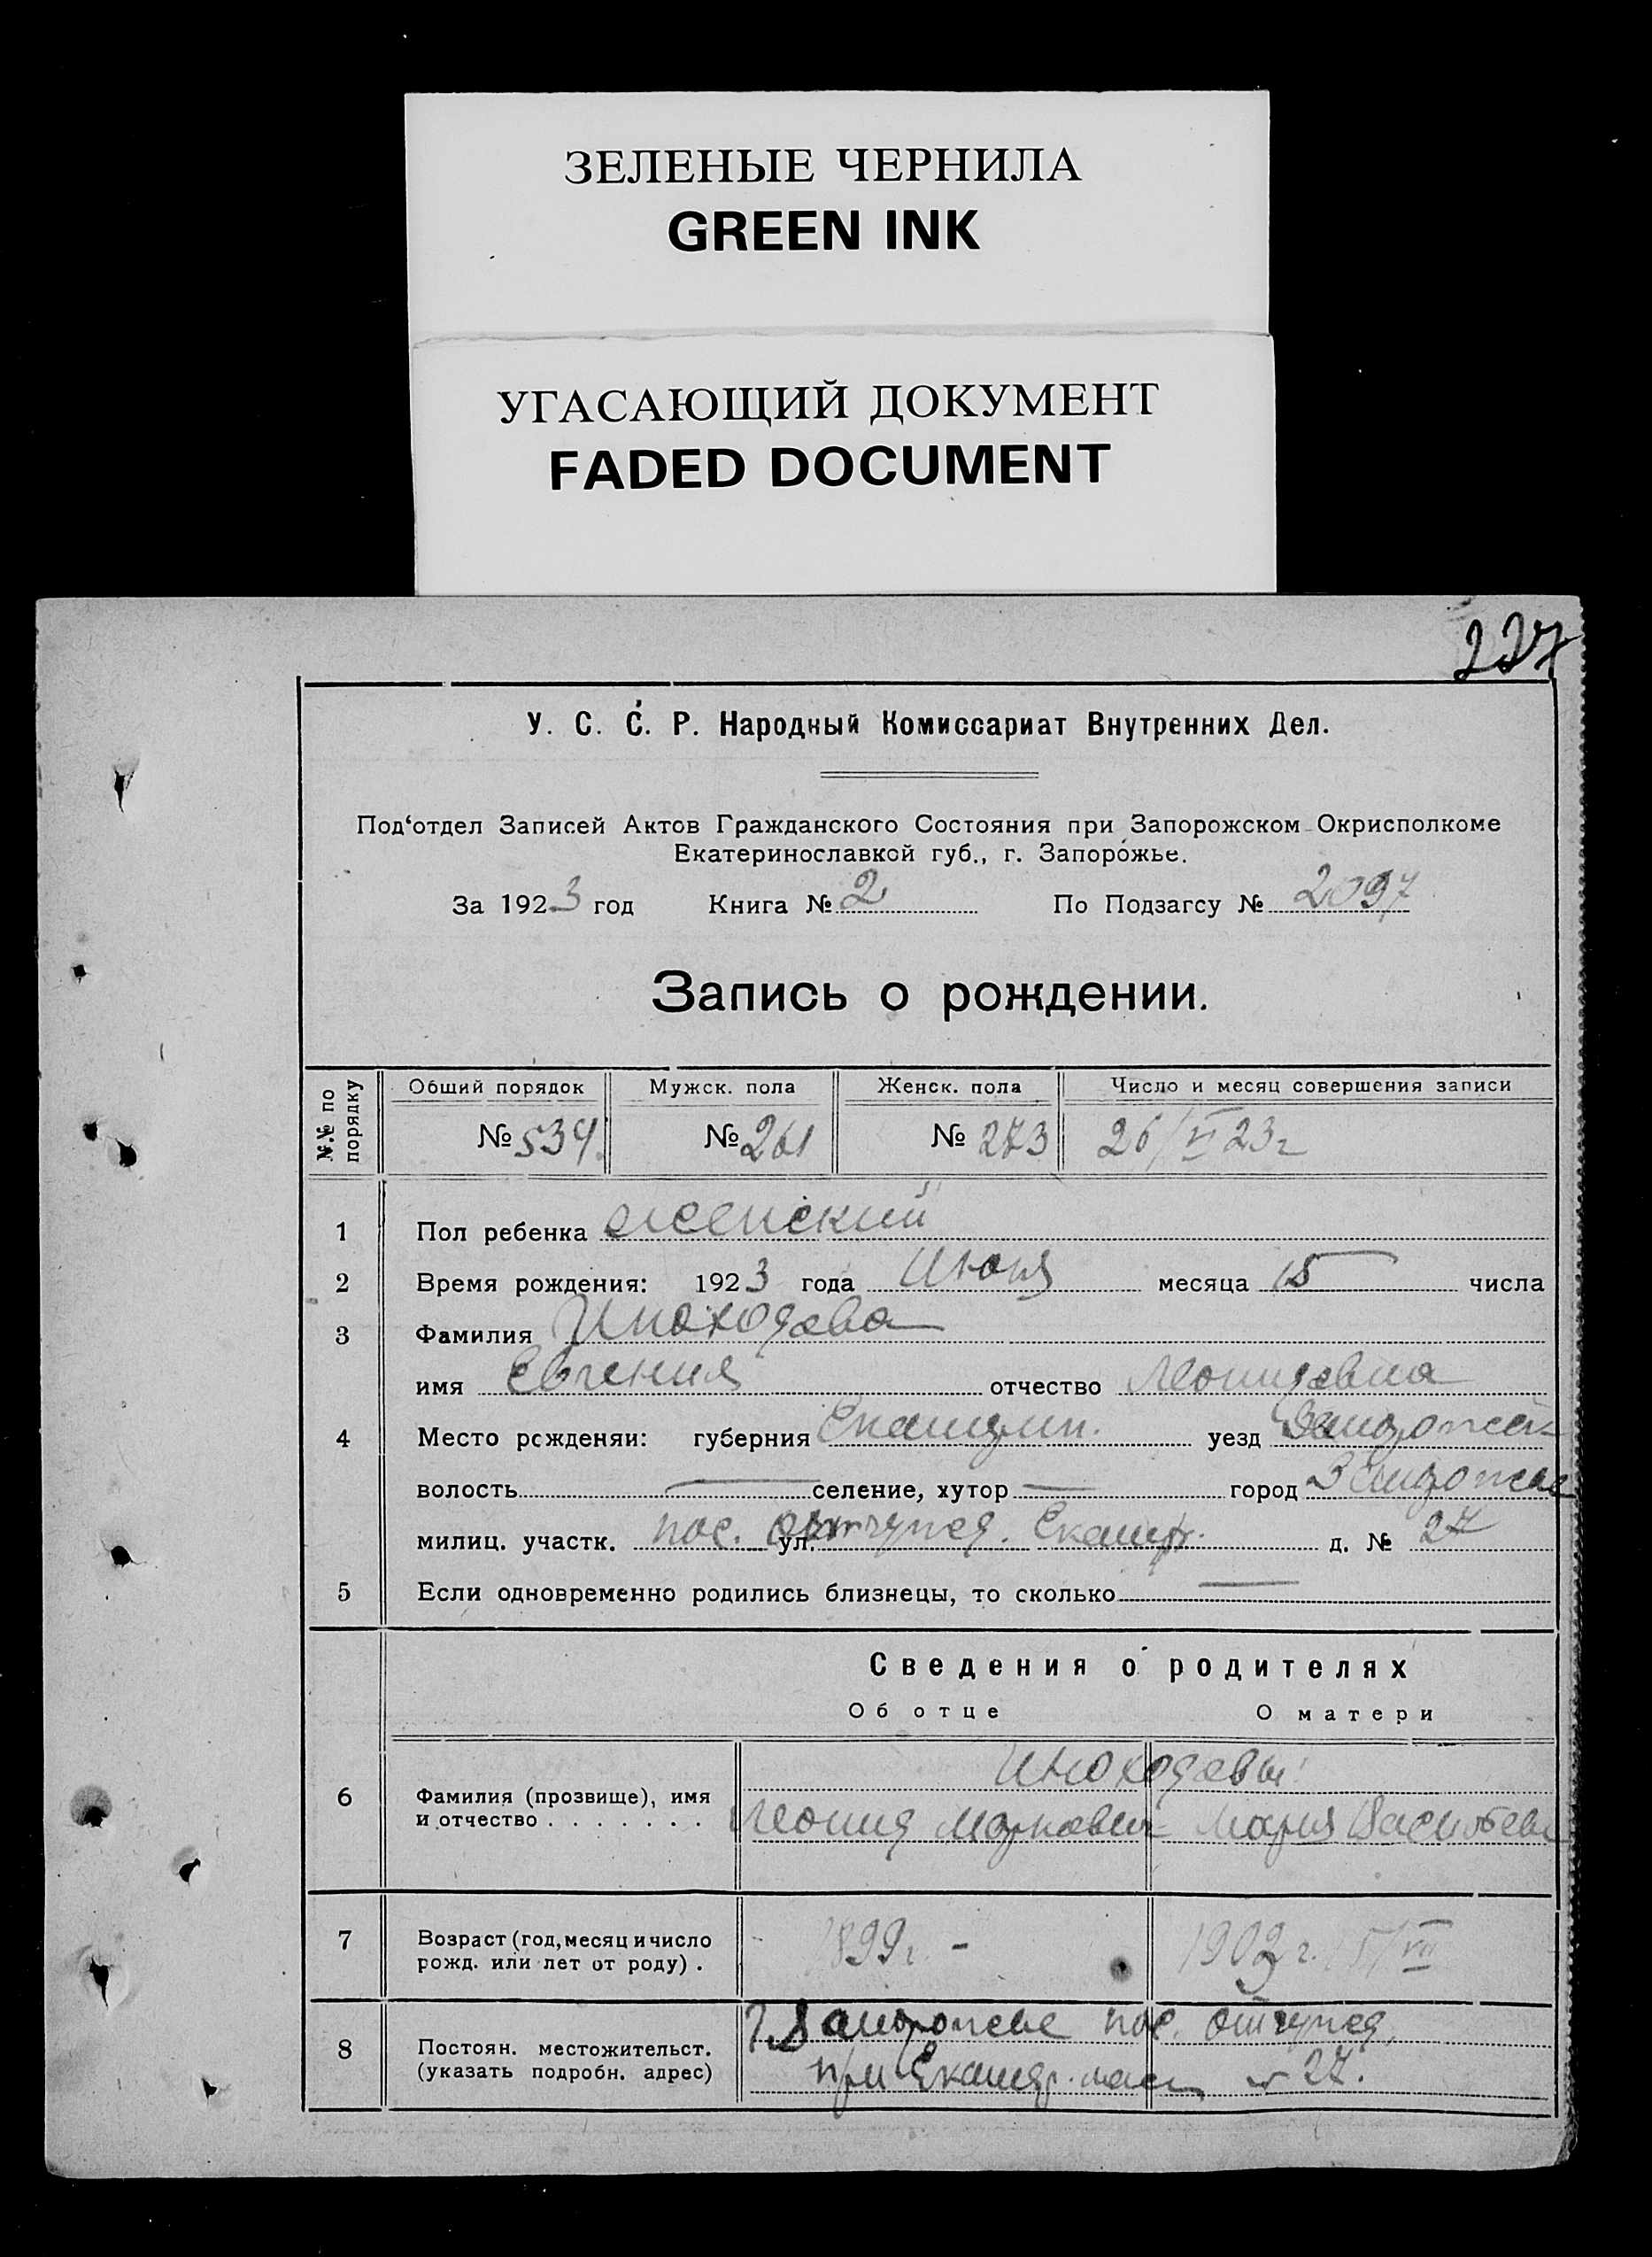 ЗЕЛЕНЫЕ ЧЕРНИЛА
GREEN INK
УГАСАЮЩИЙ ДОКУМЕНТ
FADED DOCUMENT
227
У. С. С. Р. Народный Комиссариат Внутренних Дел.
Под‘отдел Записей Актов Гражданского Состояния при Запорожском Окрисполкоме
Екатеринославкой губ., г. Запорожье.
За 1923 год Книга № 2 По Подзагсу № 2097
Запись о рождении.
№.№ по порядку
Обший порядок Мужск. пола Женск. пола Число и месяц совершения записи
№ 534 № 261 № 273 26/VI 23г
1 Пол ребенка женский
2 Время рождения: 1923 года Июня месяца 15 числа
3 Фамилия Иноходева
имя Евгения отчество Леонидовна
4 Место рожденяи: губерния уезд Запорожск
волость — селение, хутор — город Запорожье
милиц. участк. пос. ул. д. № 27
5 Если одновременно родились близнецы, то сколько —
Сведения о родителях
Об отце О матери
6 Фамилия (прозвище), имя и отчество . . . . . . .
Иноходевы
Леонид Маркович Мария Васильев
7 Возраст (год, месяц и число рожд. или лет от роду) .
1899г. - 1902г. 15/VII
8 Постоян. местожительст. (указать подробн. адрес)
г. Запорожье пос.
при 27.